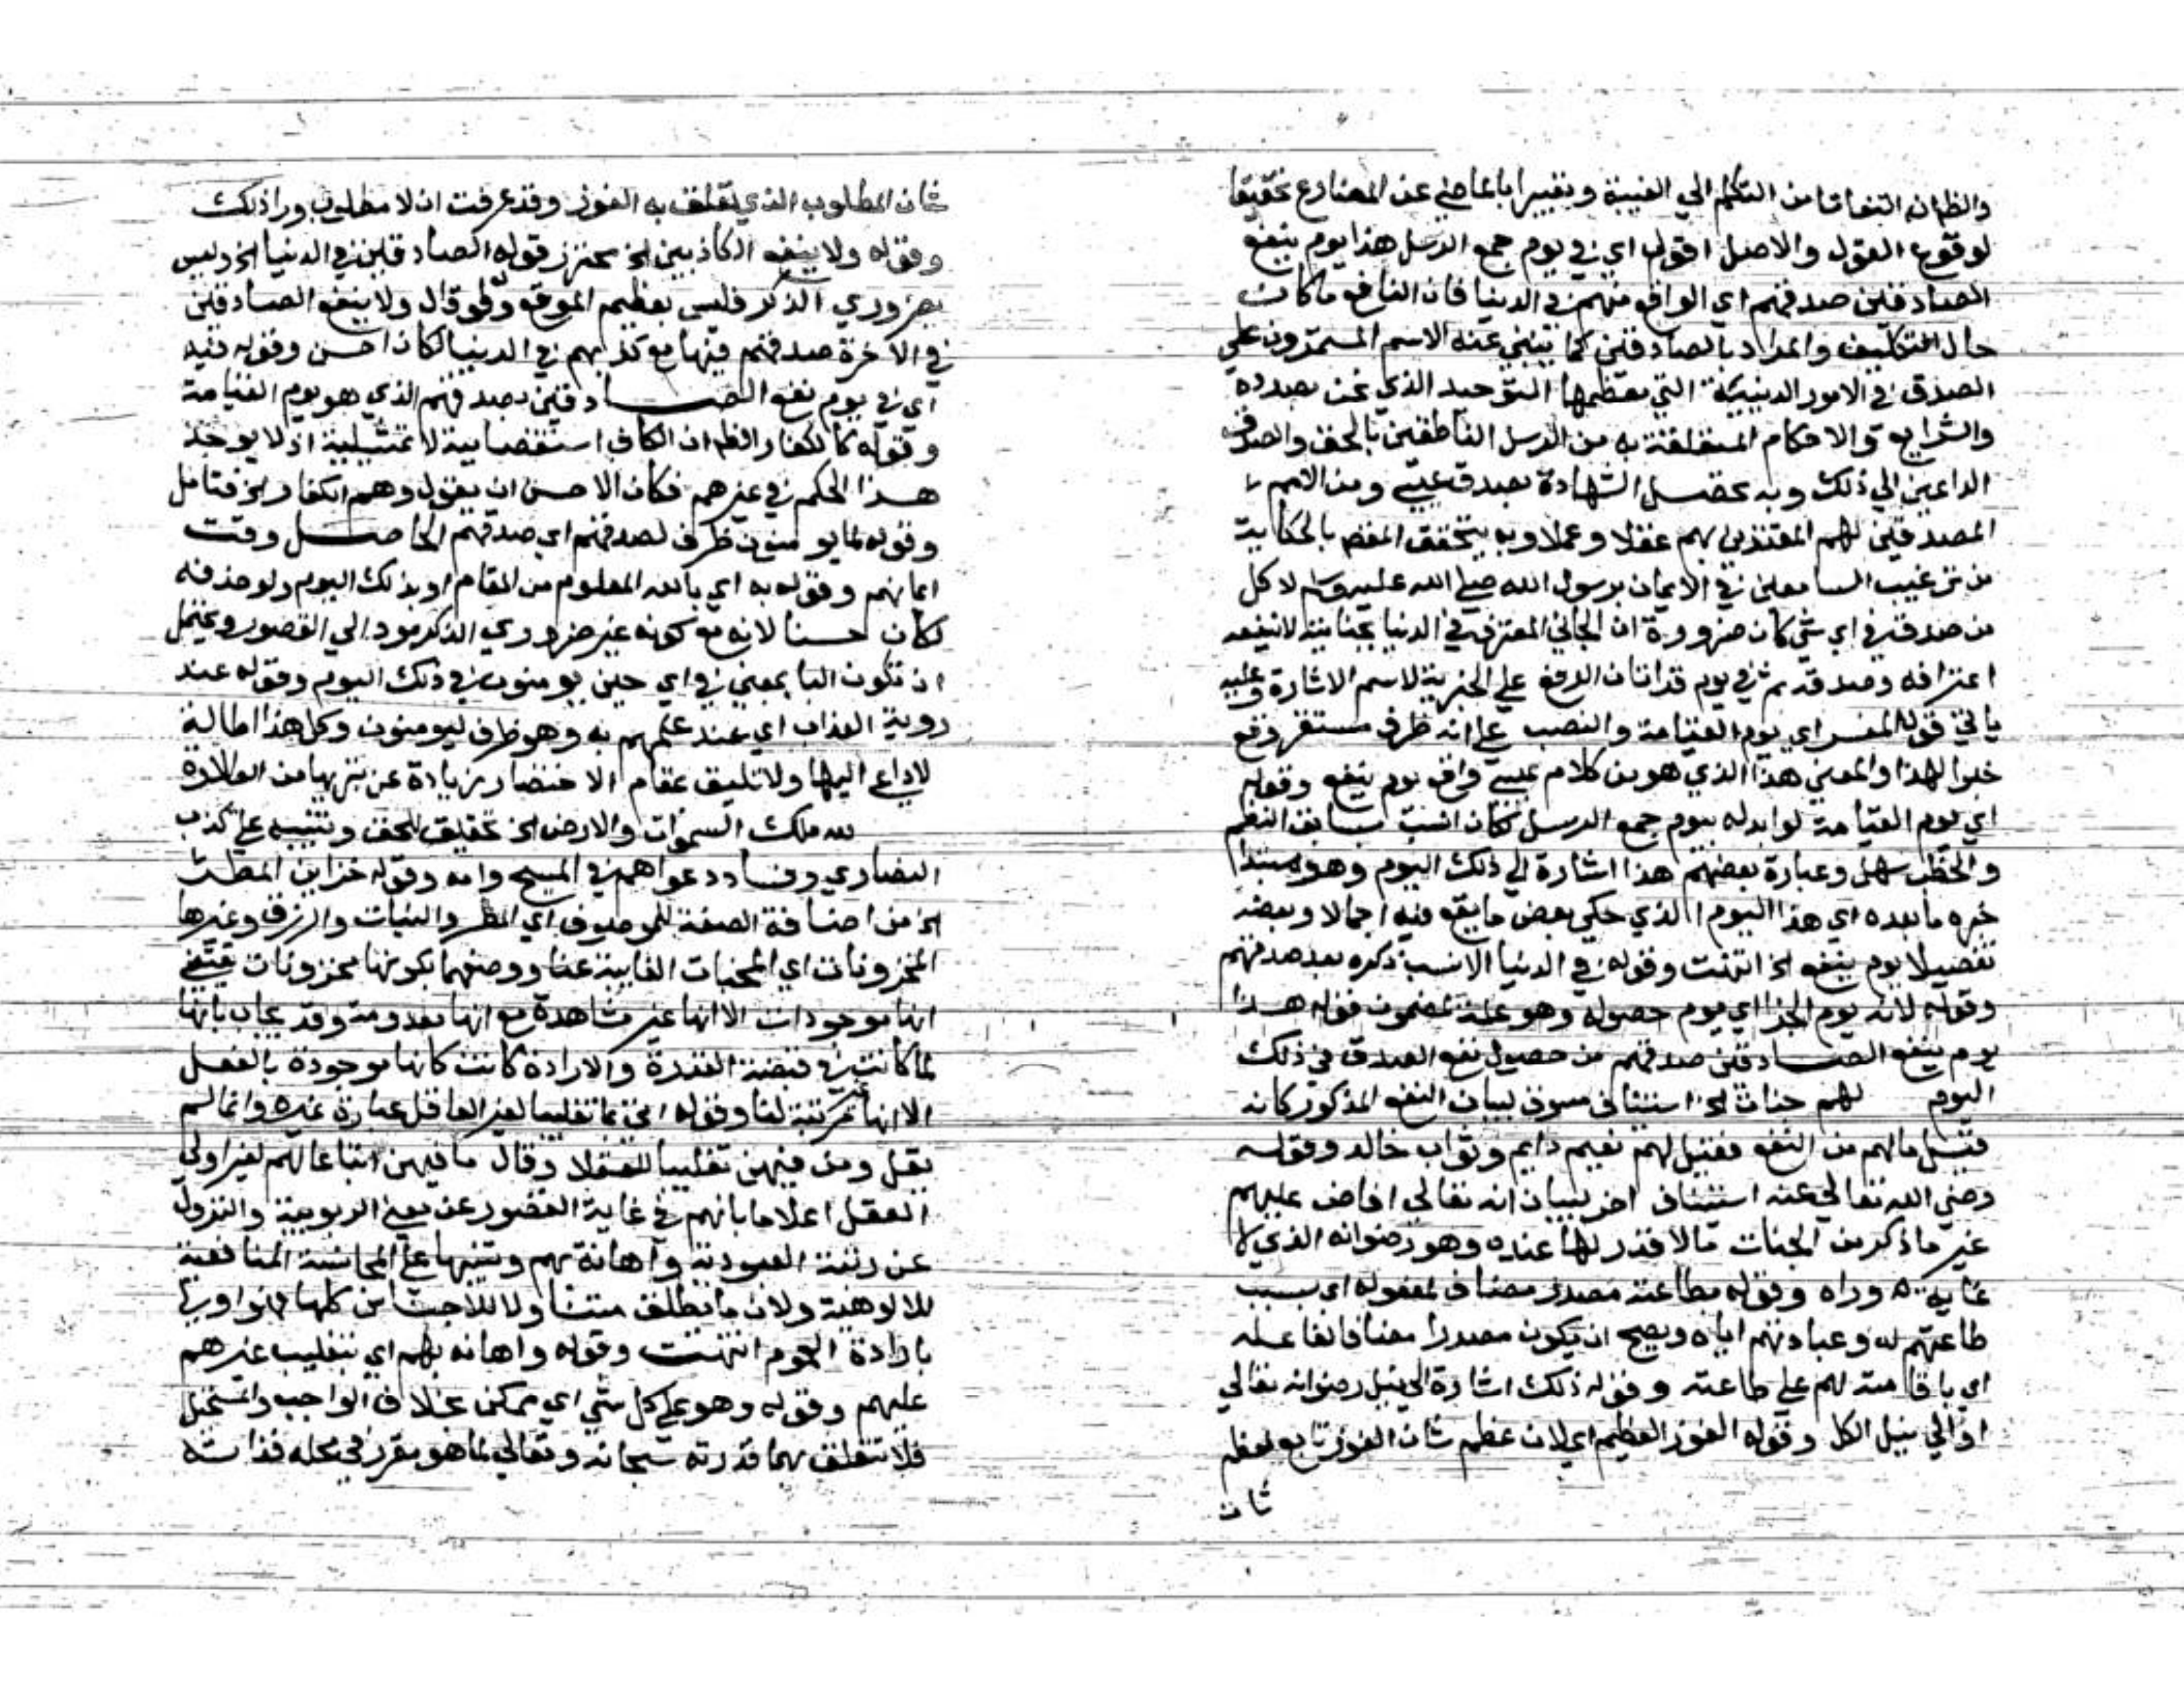 والظاهران التفاتا من التكلم الي الغيبة وتعبيرا بالماضي عن المضارع تحقيقا
لوقوع القول والاصل اقول اي في يوم جمع الرسل هذا يوم ينفع
الصادقين صدقهم اي الواقع منهم في الدنيا فان النافع ما كان
حال التكليف والمراد بالصادقين كما ينبي عنه الاسم المستمرون علي
الصدق في الامور الدينية التي معظمها التوحيد الذي نحن بصدده
والشرايع والاحكام المتعلقة به من الرسل الناطقين بالحق والصدق
الداعين الي ذلك وبه تحصل الشهادة بصدق عيسي ومن الامم
المصدقين لهم المقتدين بهم عقدا وعملا وبه يتحقق المقصد بالحكاية
من ترغيب السامعين في الايمان برسول الله صلي الله عليه وسلم لا كل
من صدق في اي شي كان ضرورة ان الجاني المعترف في الدنيا بجنايته لا ينفعه
اعترافه وصدقه ثم في يوم قراتان الرفع علي الخبرية لاسم الاشارة وعليه
ياتي قول المفسر اي يوم القيامة والنصب علي انه ظرف مستقر وقع
خبرا لهذا والمعني هذا الذي هو من كلام عيسي واقع يوم ينفع وقوله
اي يوم القيامة لو ابدله بيوم جمع الرسل لكان انسب بسابق النظم
والخطب سهل وعبارة بعضهم هذا اشارة الي ذلك اليوم وهو مبتدا
خبره ما بعده اي هذا اليوم الذي حكي بعض ما يقع فيه اجمالا وبعضه
تفصيلا يوم ينفع الخ انتهت وقوله في الدنيا الانسب ذكره بعد صدقهم
وقوله لانه يوم الجزا اي يوم حصوله وهو علة لمضمون قوله هذا
يوم ينفع الصادقين صدقهم من حصول نفع الصدق في ذلك
اليوم لهم جنات الخ استئناف مسوق لبيان النفع المذكور كانه
قيل ما لهم من النفع فقيل لهم نعيم دايم وثواب خالد وقوله
رضي الله تعالي عنه استئناف اخر لبيان انه تعالي افاض عليهم
غير ما ذكر من الجنات ما لا قدر لها عنده وهو رضوانه الذي لا
غاية وراه وقوله بطاعته مصدر مضاف لمفعوله اي بسبب
طاعتهم له وعبادتهم اياه ويصح ان يكون مصدرا مضافا لفاعله
اي باقامته لهم علي طاعته وقوله ذلك اشارة الي نيل رضوانه تعالي
او الي نيل الكل وقوله الفوز العظيم اي لان عظم شان الفوز تابع لعظم
شان
شان المطلوب الذي يتعلق به الفوز وقد عرفت ان لا مطلوب ورا ذلك
وقوله ولا ينفع الكاذبين الخ محترز قوله الصادقين في الدنيا الخ وليس
بضروري الذكر فليس بعظيم الموقع ولو قال ولا ينفع الصادقين
في الاخرة صدقهم فيها مع كذبهم في الدنيا لكان احسن وقوله فيه
اي في يوم نفع الصادقين بصدقهم الذي هو يوم القيامة
وقوله كالكفار الظاهر ان الكاف استقصايية لا تمثيلية اذ لا يوجد
هذا الحكم في غيرهم فكان الاحسن ان يقول وهم الكفار الخ فتامل
وقوله لما يومنون ظرف لصدقهم اي صدقهم الحاصل وقت
ايمانهم وقوله به اي بالله المعلوم من المقام او بذلك اليوم ولو حذفه
لكان حسنا لانه مع كونه غير ضروري الذكر مود الي القصور ويحتمل
ان تكون البا بمعني في اي حين يومنون في ذلك اليوم وقوله عند
روية العذاب اي عند علمهم به وهو ظرف ليومنون وكل هذا اطالة
لا داعي اليها ولا تليق بمقام الاختصار زيادة عن
لله ملك السموات والارض الخ تحقيق للحق وتنبيه علي كذب
النصاري وفساد دعواهم في المسيح وامه وقوله خزاين المطر
الخ من اضافة الصفة للموصوف اي المطر والنبات والرزق وغيرها
المخزونات اي المخبات الغايبة عنا ووصفهما بكونها مخزونات يقتضي
انها موجودات الا انها غير مشاهدة مع انها معدومة وقد يجاب بانها
لما كانت في قبضة القدرة والارادة كانت كانها موجودة بالفعل
الا انها غير مرئية لنا وقوله اتي بما تغليبا لغير العاقل عبارة غيره وانما لم
يقل ومن فيهن تغليبا للعقلا وقال ما فيهن اتباعا لهم لغير اولي
العقل اعلاما بانهم في غاية القصور عن معني الربوبية والنزول
عن رتبة العبودية واهانة بهم وتنبيها علي المجانسة المنافية
للالوهية ولان ما يطلق متناولا للاجناس كلها فهو اولي
بارادة العموم انتهت وقوله واهانه بهم اي بتغليب غيرهم
عليهم وقوله وهو علي كل شي اي ممكن بخلاف الواجب والمستحيل
فلا تتعلق بهما قدرته سبحانه وتعالي لما هو مقرر في محله فذاته